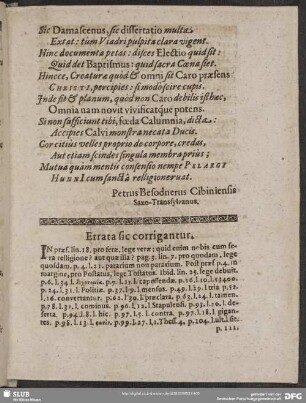 Sic Damascenus, sic dissertatio multæ
Extat: tùm Viadri pulpita clara vigent.
Hinc documenta petas: disces Electio quid sit:
Quid det Baptismus: quid sacra Cœna siet.
Hincce, Creaturæ quòd & omni sit Caro præsens
CHRISTI, percipies: si modò scire cupis.
Inde sit & planum, quòd non Caro debilis isthæc,
Omnia nam novit vivificatque potens.
Si non sufficiunt tibi, fœda Calumnia, dicta:
Accipies Calvi monstra necata Ducis.
Gor citiùs velles proprio de corpore, credas,
Aut etiam scindes singula membra priùs;
Mutua quàm mentis consensio nempe PELARGI
HUNNI cum sanctâ religione ruat.
Petrus Besodnerus Cibiniensis
Saxo-Transylvanus.
Errata sic corrigantur.
IN præf. lin. 18. pro ferè, lege verè: quid enim nobis cum fe-
ra religione? aut quæ illa? pag. 3. lin. 7. pro quondam, lege
quoddam. p. 4. l. 21. pararium non paraxium. Post præf. p. 4. in
margine, pro Postatus, lege Tostatus. Ibid. lin. 25. lege debuit.
p. 24. l. 31. l. Politiæ. p. 37. l. mensus. p. 49. l. tria p. 52.
16. convertantur. p. 61. l. 30. l. præclara. p. 63. l. 24. l. tamen.
p. 78. l. 31. l. continuo. p. 90. l. 12. l. Stapulensi. p. 93. l. 20. l. de-
serta. p. 94. l. 18. l. hic. p. 97. l. 1. contra. p. 97. l. 18. l. gigan-
p. 111.
SLUB
Wir führen Wissen.
DFG